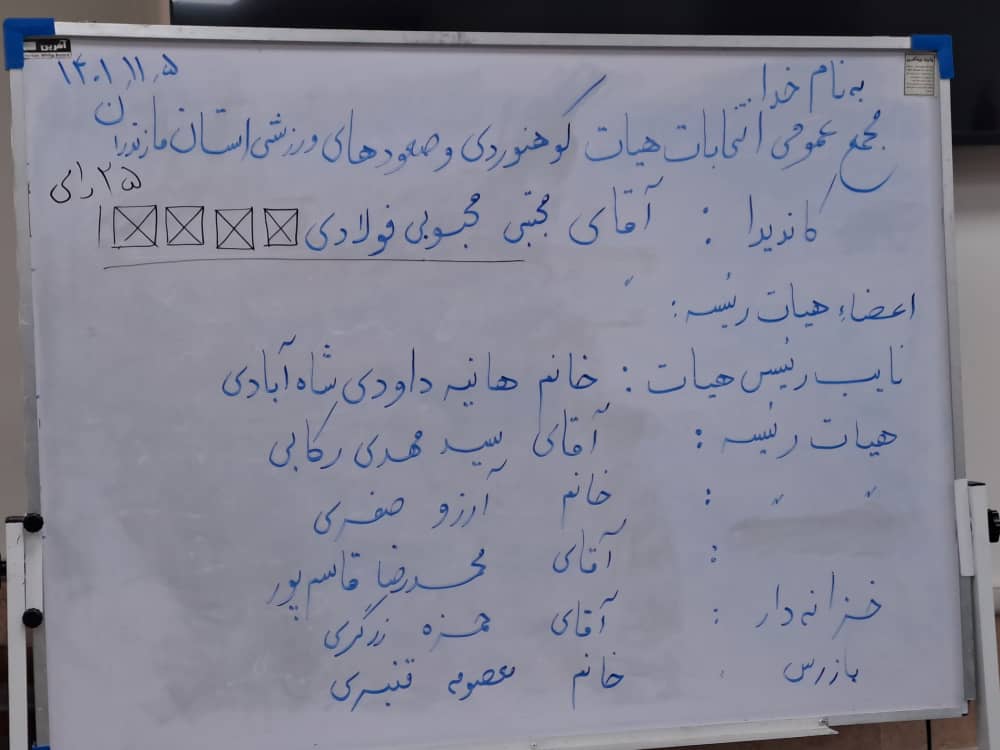 به نام خدا
۱۴۰۱٫۱۱٫۵
مجمع عمومی انتخابات هیات کوهنوردی و صعودهای ورزشی استان مازندران
۲۵ رای
کاندیدا : آقای مجتبی محبوبی فولادی
اعضاء هیات رئیسه :
نایب رئیس هیات : خانم هانیه داودی شاه آبادی
هیات رئیسه : آقای سید مهدی رکابی
〃 〃 : خانم آرزو صفری
: آقای محمدرضا قاسم پور
خزانه دار : آقای حمزه زرگری
بازرس : خانم معصومه قنبری
آفرین